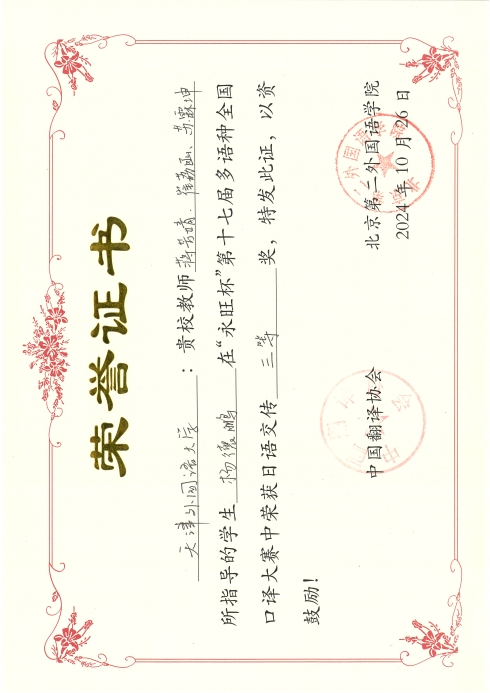 荣誉证书
天津外国语大学：贵校教师蒋芳婧、崔荔函、苏霖坤
所指导的学生杨德鹏在“永旺杯”第十七届多语种全国
口译大赛中荣获日语交传三等奖，特发此证，以资
鼓励！
中国翻译协会 北京第二外国语学院
2024年10月26日